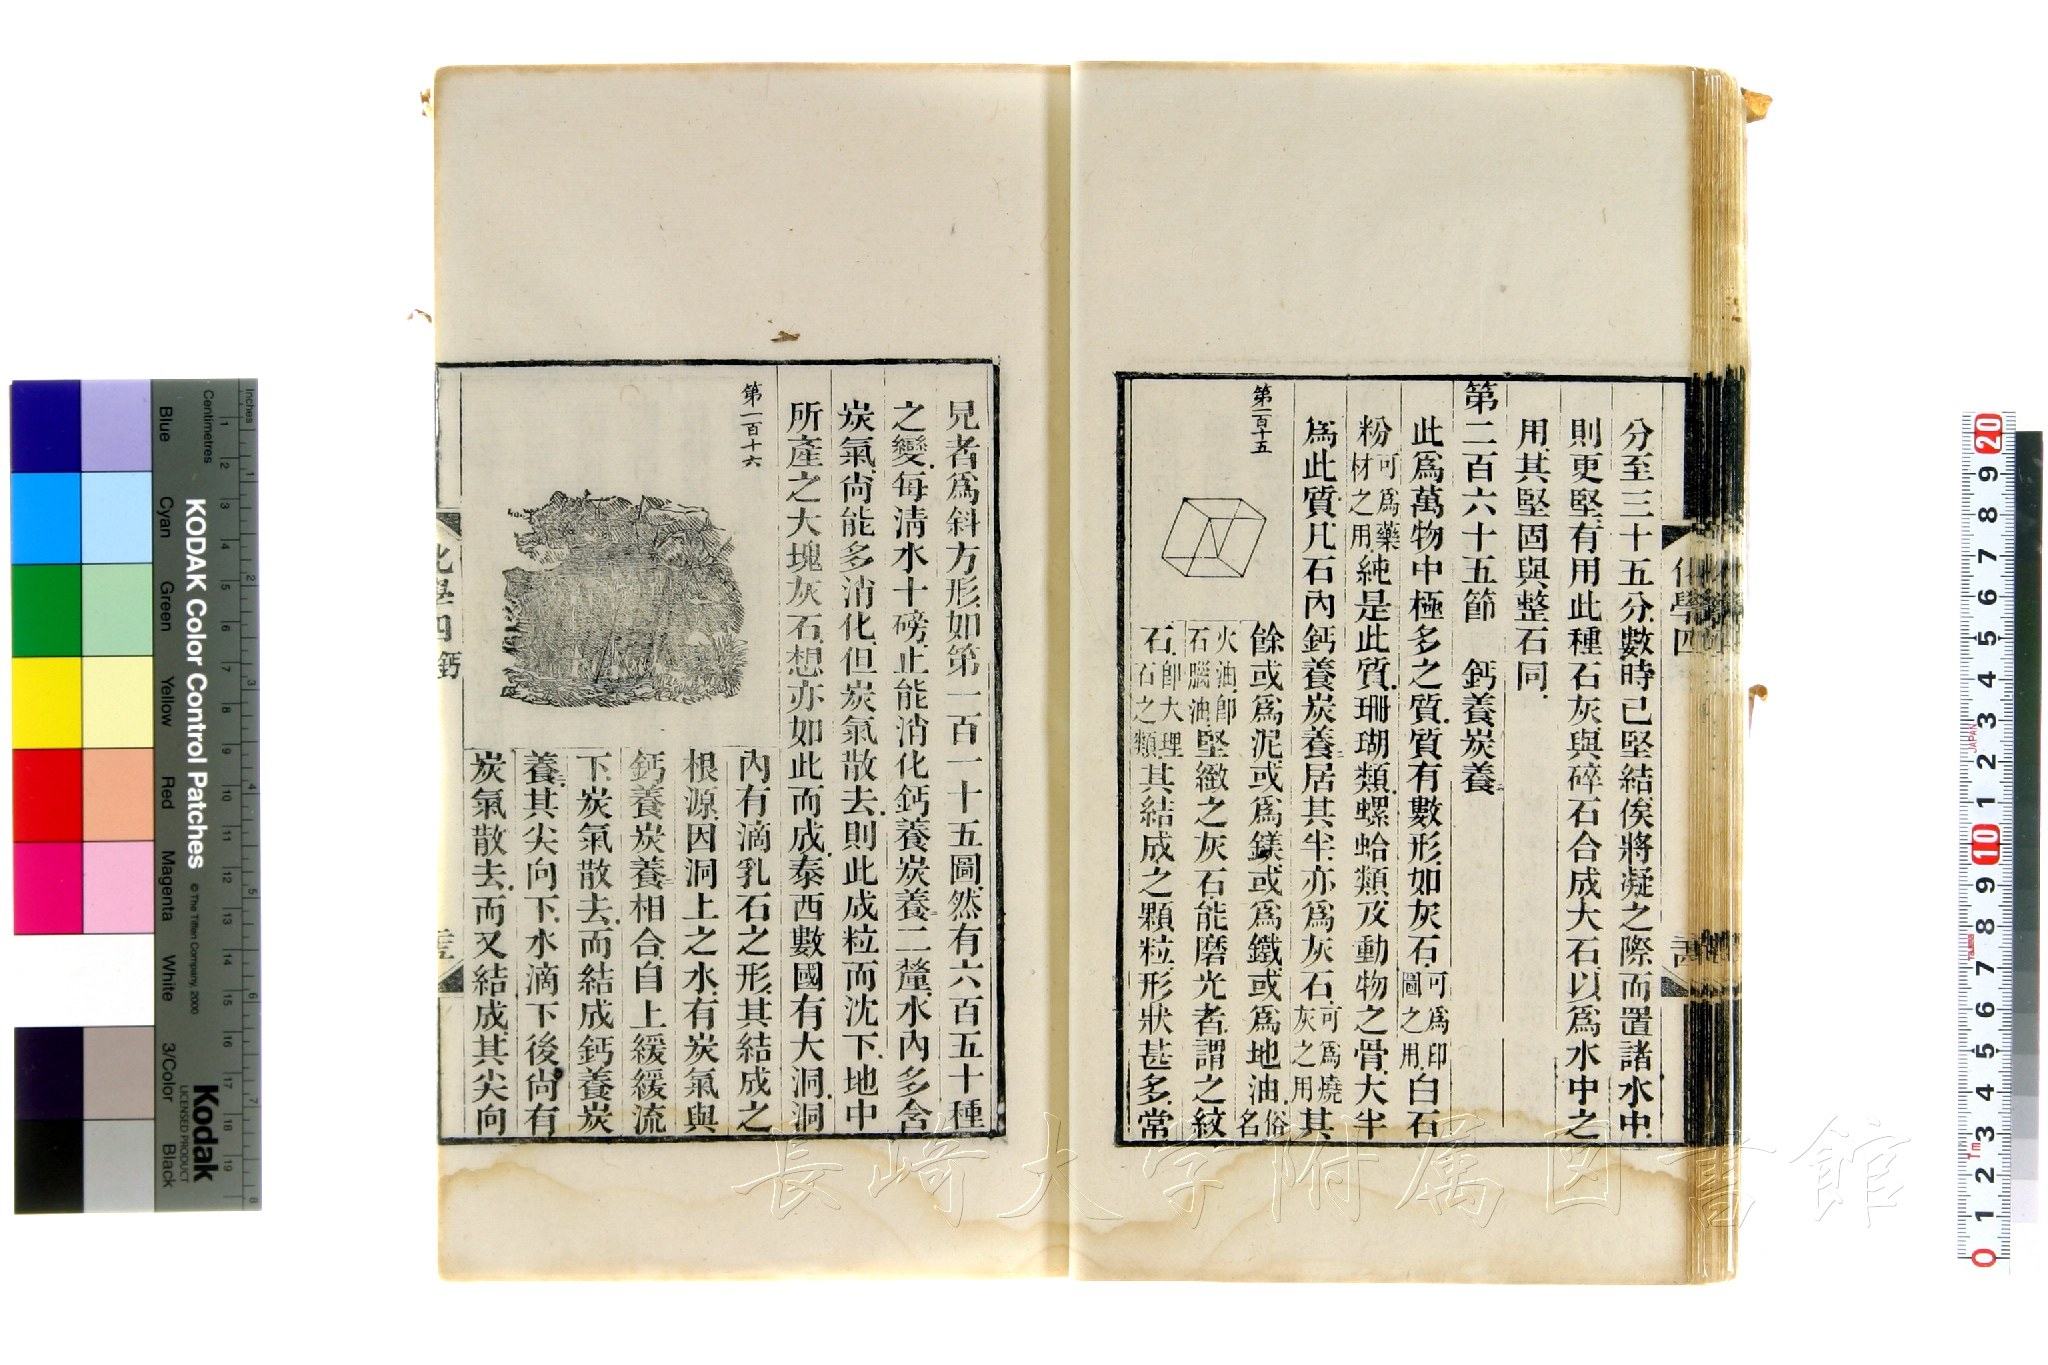 分至三十五分數時已堅結俟將凝之際而置諸水中
則更堅有用此種石灰與碎石合成大石以爲水中之
用其堅固與整石同
第二百六十五節 鈣養炭養二
此爲萬物中極多之質質有數形如灰石可爲印圖之用白石
粉可爲藥材之用純是此質珊瑚類螺蛤類及動物之骨大半
爲此質凡石內鈣養炭養二居其半亦爲灰石可爲燒灰之用其
第一百十五
餘或爲泥或爲鎂或爲鐵或爲地油俗名
火油卽石腦油堅緻之灰石能磨光者謂之紋
石卽大理石之類其結成之顆粒形狀甚多常
化學四
見者爲斜方形如第一百一十五圖然有六百五十種
之變每淸水十磅止能消化鈣養炭養二二釐水內多含
炭氣尙能多消化但炭氣散去則此成粒而沈下地中
所產之大塊灰石想亦如此而成泰西數國有大洞洞
第一百十六
內有滴乳石之形其結成之
根源因洞上之水有炭氣與
鈣養炭養二相合自上緩緩流
下炭氣散去而結成鈣養炭
養二其尖向下水滴下後尙有
炭氣散去而又結成其尖向
化學四 鈣
長崎大学附属図書館
KODAK Color Control Patches
© The Tiffen Company, 2000
Kodak
LICENSED PRODUCT
Inches
Centimetres
Blue
Cyan
Green
Yellow
Red
Magenta
White
3/Color
Black
JAPAN